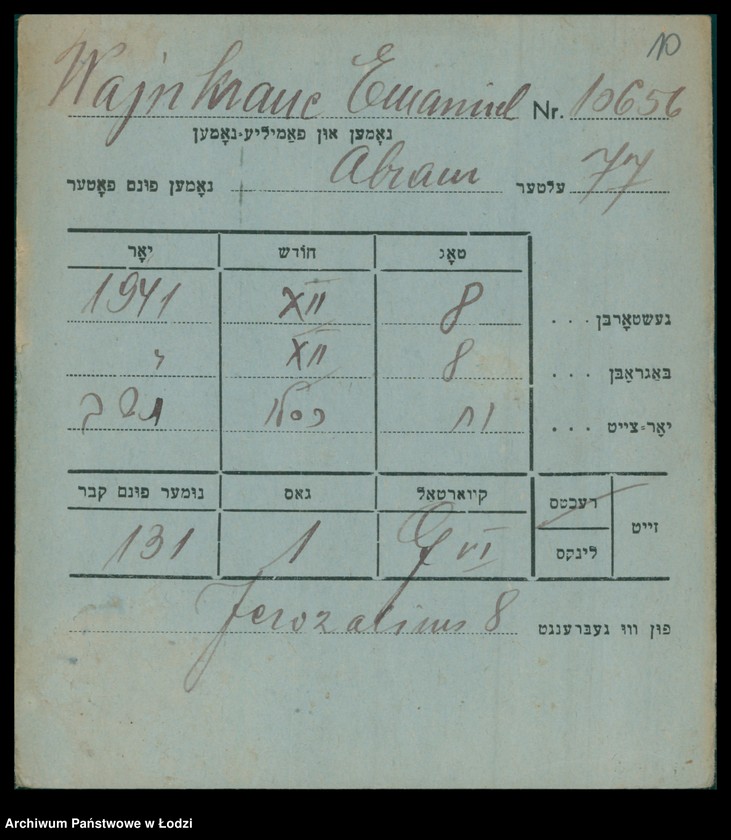 10
Wajnkranc Emanuel Nr. 10656
נאָמען און פאַמיליע-נאָמען
נאָמען פונם פאָטער Abram עלטער 77
טאָג חודש יאָר
געשטאָרבן . . . 8 XII 1941
באַגראַבן . . . 8 XII "
יאָר-צייט . . . יח כסלו תשב
זייט רעכטס לינקס קוואַרטאַל גאַס נומער פונם קבר
G VI 1 131
פון וווּ געברענגט Jerozalims 8
Archiwum Państwowe w Łodzi